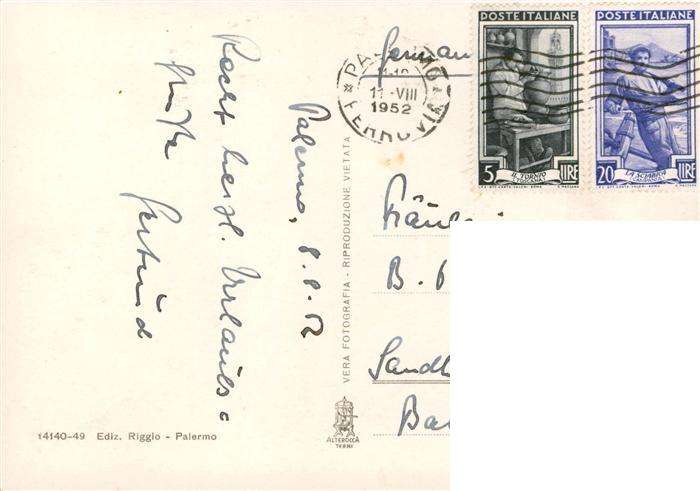 Palermo, 8.8.52
Recht herzl. Urlaubs-
grüße
Gertrud
German
PA
11-VIII
1952
FERROVIA
POSTE ITALIANE
5 LIRE
IL TORNIO
POSTE ITALIANE
20 LIRE
LA SCIABICA
Fräulein
B.
Sandh
Ba
VERA FOTOGRAFIA - RIPRODUZIONE VIETATA
ALTEROCCA
TERNI
14140-49 Ediz. Riggio - Palermo